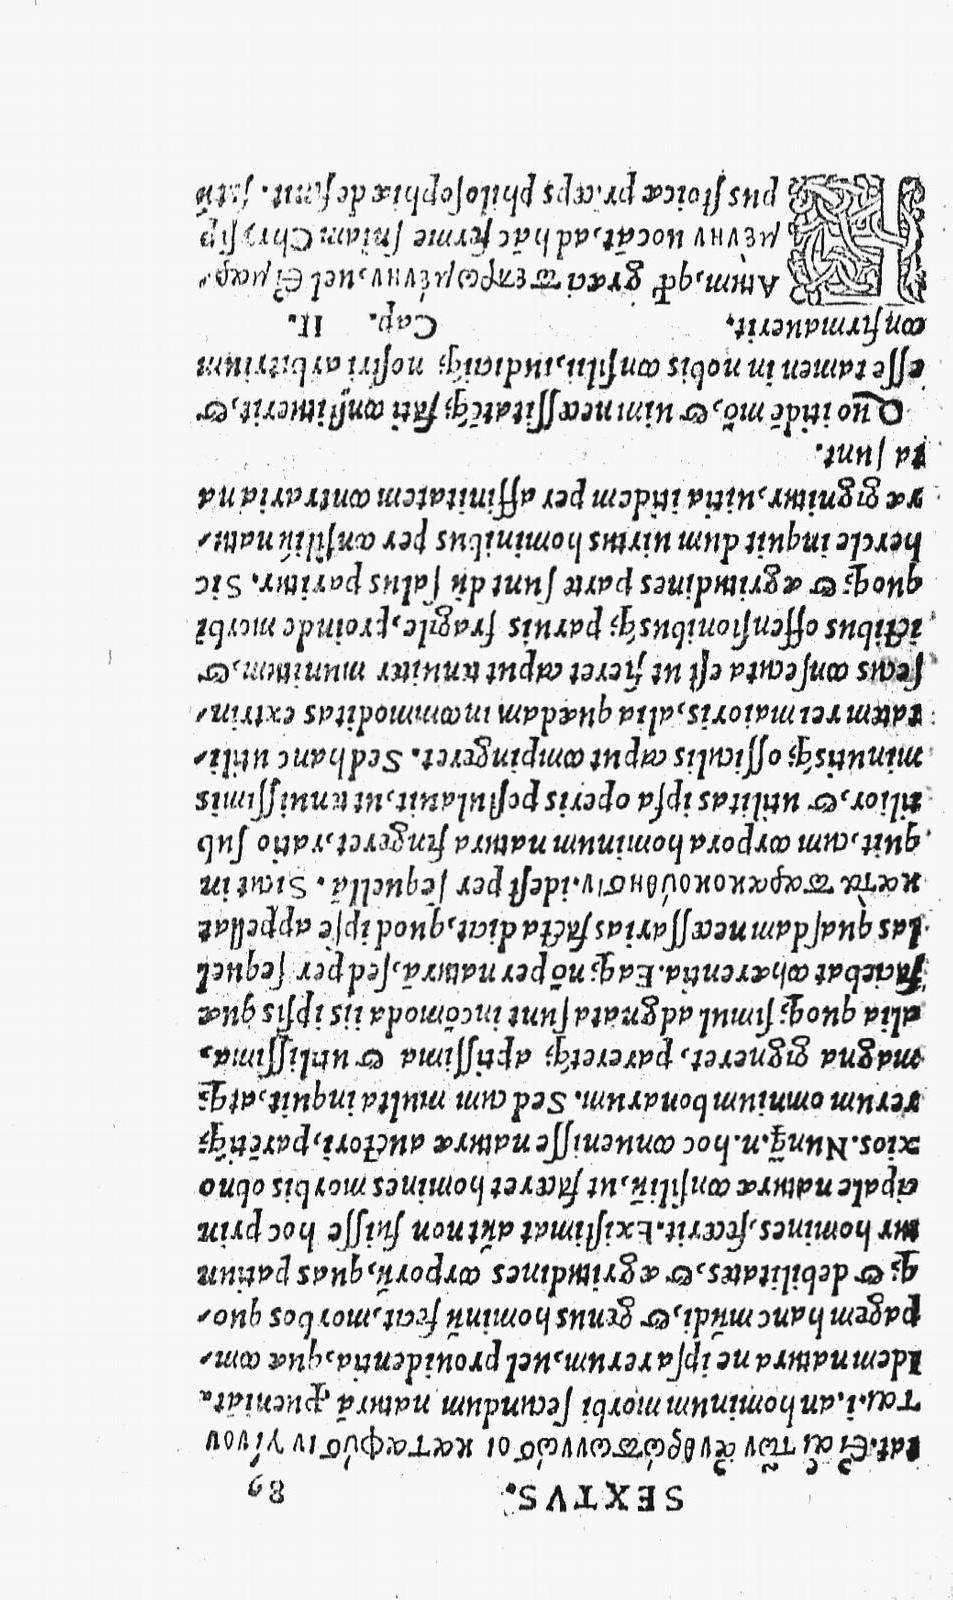 SEXTVS. 89
tat. Εἰ αἱ τῶν ἀνθρώπων νόσοι κατὰ φύσιν γίνον
ται. i. an hominum morbi secundum naturā ꝓueniāt.
Idem natura ne ipsa rerum, uel prouidentia, quæ com-
pagem hanc mūdi, & genus hominū fecit, morbos quo-
q̃; & debilitates, & ægritudines corporū, quas patiun
tur homines, fecerit. Existimat autē non fuisse hoc prin
cipale naturæ consiliū, ut faceret homines morbis obno
xios. Nunq̃.n. hoc conuenisse naturæ auctori, parētiq́;
rerum omnium bonarum. Sed cum multa inquit, atq́;
magna gigneret, pareretq́; aptissima & utilissima,
alia quoq́; simul adgnata sunt incōmoda iis ipsis quæ
faciebat cohærentia. Eaq́; nō per naturā, sed per sequel
las quasdam necessarias facta dicit, quod ipse appellat
κατὰ παρακολούθησιν. id est per sequellā. Sicut in
quit, cum corpora hominum natura fingeret, ratio sub
tilior, & utilitas ipsa operis postulauit, ut tenuissimis
minutisq́; ossiculis caput compingeret. Sed hanc utili-
tatem rei maioris, alia quædam incommoditas extrin-
secus consecuta est ut fieret caput tenuiter munitum, &
ictibus offensionibusq́; paruis fragile, proinde morbi
quoq́; & ægritudines partæ sunt dū salus paritur. Sic
hercle inquit dum uirtus hominibus per consiliū natu-
ræ gignitur, uitia itidem per affinitatem contraria na
ta sunt.
Quo itidē mō, & uim necessitatēq́; fati constituerit, &
esse tamen in nobis consilii, iudiciiq́; nostri arbitrium
confirmauerit. Cap. II.
FAtum, qđ græci πεπρωμένην, uel εἱμαρ-
μένην uocāt, ad hāc ferme sniam Chrysip
pus stoicæ prīceps philosophiæ definit.